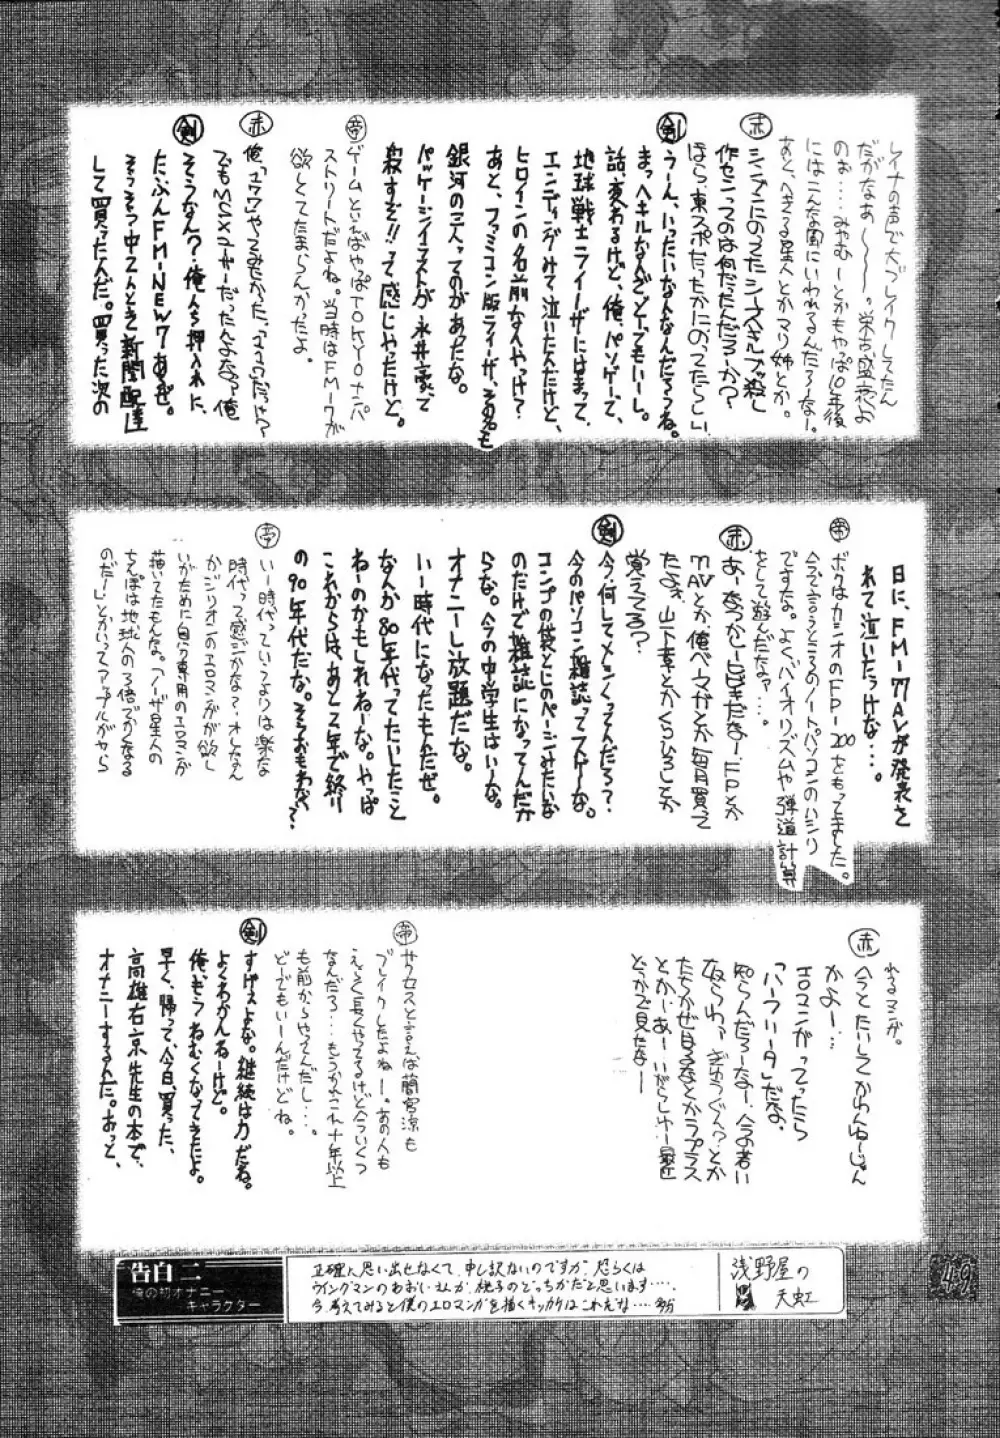 レイナの声で大ブレイクしてたん
だがなぁ〜〜〜。栄古盛衰よ
のぉ…みやむーとかもやっぱ10年後
にはこんな風にいわれるんだろーなー。
あと、へきる星人とかマリ姉とか。
赤
作センってのは何だったんだろうか？
ほら、東スポだったかにのってたらしい
剣
うーん、いったいなんなんだろうね。
まっへキルなんざどーでもいーし。
話、変わるけど、俺、パソゲーで、
地球戦士ライーザにはまって、
エンディングみて泣いたんだけど、
ヒロインの名前なんやっけ？
あと、ファミコン版ライーザ、その名も
銀河の三人ってのがあったな。
パッケージイラストが永井豪で
殺すぞ!!って感じやったけど。
帝
ゲームといえばやっぱTOKYOナンパ
ストリートだよね。当時はFMー7が
欲しくてたまらんかったよ。
赤
でもMSXユーザーだったんよなぁ?俺
剣
そうなん？俺んち押入れに、
たぶんFM-NEW7あるぜ。
そっそっ中2んとき新聞配達
して買ったんだ。買った次の
日に、FM-77AVが発表さ
れて泣いたっけな…。
帝
ボクはカシオのFP-200をもってました。
今で言うところのノートパソコンのハシリ
ですな。よくバイオリズムや弾道計算
をして遊んだなァ…。
赤
あーあつかしーひびきだなー。FPとか
MAVとか、俺ベーマガとか毎月買って
たよぉ、山下章とかくらひろしとか
覚えてる？
剣
今、何してメシくってんだろう？
今のパソコン雑誌ってスゲーな。
コンプの袋とじのページみたいな
のだけで雑誌になってんだか
らな。今の中学生はいーな。
オナニーし放題だな。
いー時代になったもんだぜ。
なんか80年代ってたいしたこと
ねーのかもしれねーな。やっぱ
これからは、あと二年で終り
の90年代だな。そうおもわねぇ？
帝
いー時代っていうよりは楽な
時代って感ジかな？オレなん
かジリオンのエロマンガが欲し
いがために自分専用のエロマンガ
描いてたもんな。「ノーザ星人の
ちんぽは地球人の3倍ぐらいなる
のだー」とかいってアップルがヤら
れるマンガ。
赤
今とたいしてかわんねーじゃん
かよー…
エロマンガってったら
「ハーフリータ」だな、
知らんだろーなー、今の若い
とかーあーいがらしゆー最近
どっかで見たなー
帝
サクセスと言えば蘭宮涼も
ブレイクしたよねー。あの人も
えらく長くやってるけど今いくつ
なんだろ…もうかれこれ十年以上
も前からやってんだし…。
どーでもいーんだけどね。
剣
すげぇよな。継続は力だね。
よくわかんねーけど。
俺もうねむくなってきたよ。
早く、帰って、今日、買った、
高雄右京先生の本で、
オナニーするんだ。おっと、
告白二
俺の初オナニー
キャラクター
正確に思い出せなくて申し訳ないのですが、恐らくは
ウイングマンのあおいさんか、桃子のどっちかだと思います……
今考えてみると僕のエロマンガを描くキッカケはこれだな……多分
浅野屋の
天虹
49